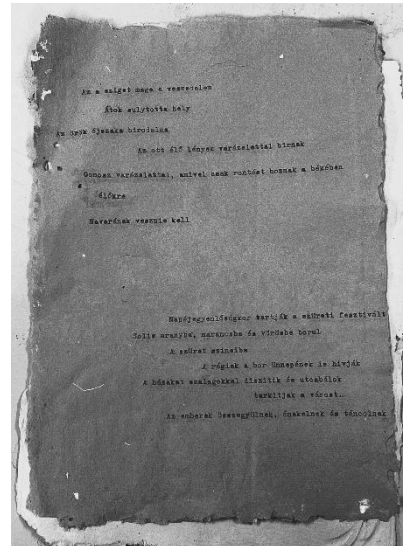 Az a sziget maga a veszedelem
Átok sulytotta hely
Az örök éjszaka birodalma
Az ott élő lények varázslattal birnak
Gonosz varázslattal, amivel csak rontást hoznak a békében
élőkre
Navarának vesznie kell
Napéjegyenlőségkor tartják a szüreti fesztivált
Solis aranyba, narancsba és vörösbe borul
A szüret szineibe
A régiek a bor ünnepének is hívják
A házakat szalagokkal díszitik és utcabálok
tarkítják a várost..
Az emberek összegyűlnek, énekelnek és táncolnak